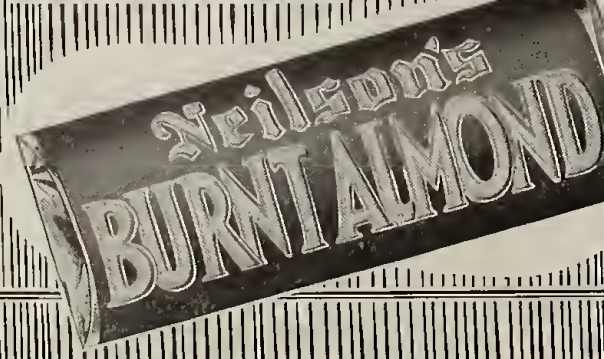 Neilson's
BURNT ALMOND